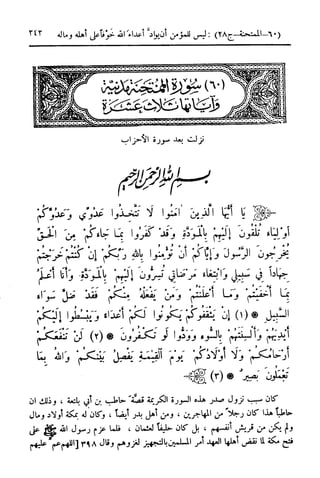 (٦٠-الممتحنة-ج٢٨) : ليس للمؤمن أن يوادّ أعداء الله خوفاً على أهله وماله ٢٤٢
(٦٠) سُورَة الممتَحنَة مَدنيّة
وَآيَاتها ثلاث عَشرَة
نزلت بعد سورة الأحزاب
بِسْمِ اللهِ الرَّحْمنِ الرَّحِيمِ
يَا أَيُّهَا الَّذِينَ آمَنُوا لَا تَتَّخِذُوا عَدُوِّي وَعَدُوَّكُمْ
أَوْلِيَاءَ تُلْقُونَ إِلَيْهِمْ بِالْمَوَدَّةِ وَقَدْ كَفَرُوا بِمَا جَاءَكُمْ مِنَ الْحَقِّ
يُخْرِجُونَ الرَّسُولَ وَإِيَّاكُمْ أَنْ تُؤْمِنُوا بِاللهِ رَبِّكُمْ إِنْ كُنْتُمْ خَرَجْتُمْ
جِهَادًا فِي سَبِيلِي وَابْتِغَاءَ مَرْضَاتِي تُسِرُّونَ إِلَيْهِمْ بِالْمَوَدَّةِ وَأَنَا أَعْلَمُ
بِمَا أَخْفَيْتُمْ وَمَا أَعْلَنْتُمْ وَمَنْ يَفْعَلْهُ مِنْكُمْ فَقَدْ ضَلَّ سَوَاءَ
السَّبِيلِ * (١) إِنْ يَثْقَفُوكُمْ يَكُونُوا لَكُمْ أَعْدَاءً وَيَبْسُطُوا إِلَيْكُمْ
أَيْدِيَهُمْ وَأَلْسِنَتَهُمْ بِالسُّوءِ وَوَدُّوا لَوْ تَكْفُرُونَ * (٢) لَنْ تَنْفَعَكُمْ
أَرْحَامُكُمْ وَلَا أَوْلَادُكُمْ يَوْمَ الْقِيمَةِ يَفْصِلُ بَيْنَكُمْ وَاللهُ بِمَا
تَعْمَلُونَ بَصِيرٌ * (٣)
كان سبب نزول صدر هذه السورة الكريمة قصّة حاطب بن أبي بلتعة ، وذلك ان
حاطباً هذا كان رجلاً من المهاجرين ، ومن أهل بدر أيضاً ، وكان له بمكة أولاد ومال
ولم يكن من قريش أنفسهم ، بل كان حليفاً لعثمان ، فلما عزم رسول الله ﷺ على
فتح مكة لما نقض أهلها العهد أمر المسلمين بالتجهيز لغزوهم وقال ٣٩٨ [اللهم عم عليهم